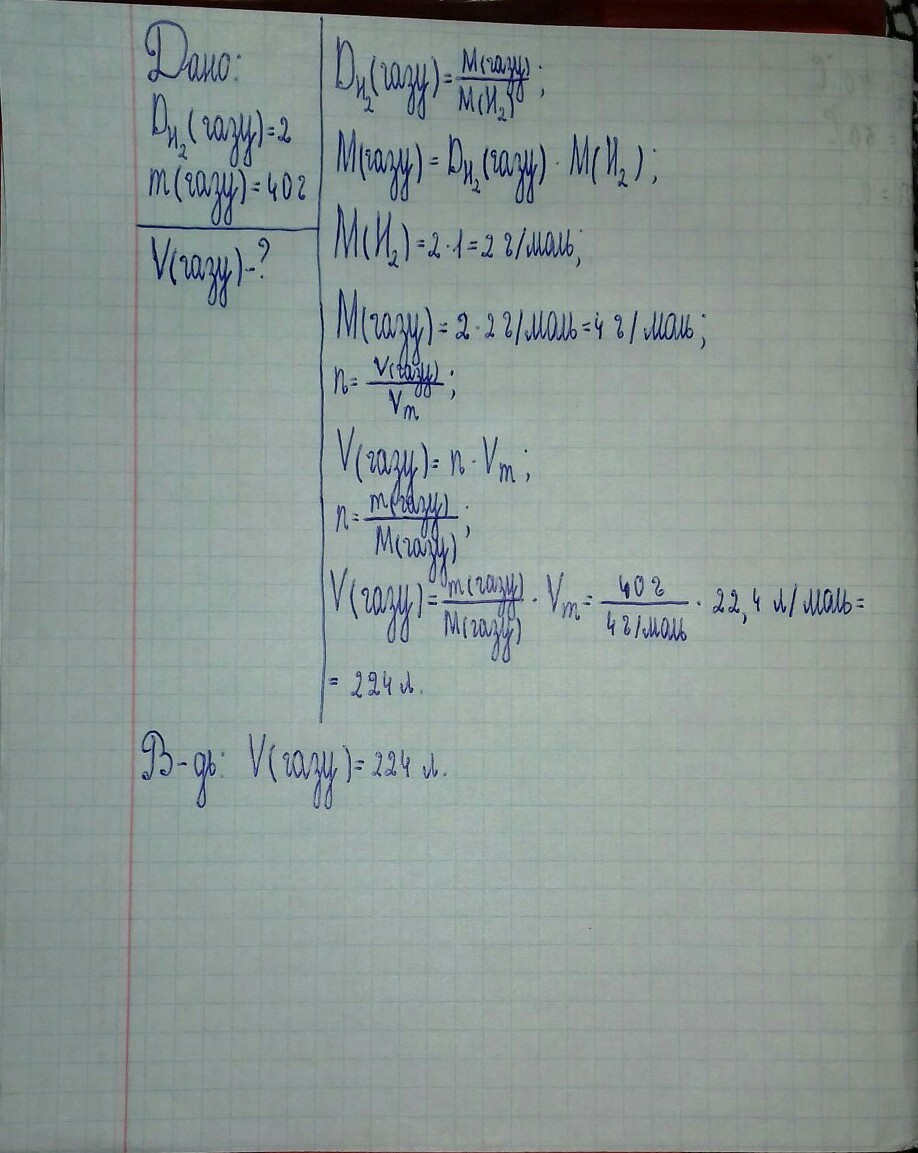 Дано:
D_H₂(газу)=2
m(газу)=40г
V(газу)-?
D_H₂(газу)=M(газу)/M(H₂);
M(газу)=D_H₂(газу)·M(H₂);
M(H₂)=2·1=2 г/моль;
M(газу)=2·2г/моль=4 г/моль;
n=V(газу)/Vm;
V(газу)=n·Vm;
n=m(газу)/M(газу);
V(газу)=m(газу)/M(газу)·Vm=40г/4г/моль·22,4 л/моль=
= 224 л.
В-дь: V(газу)=224 л.